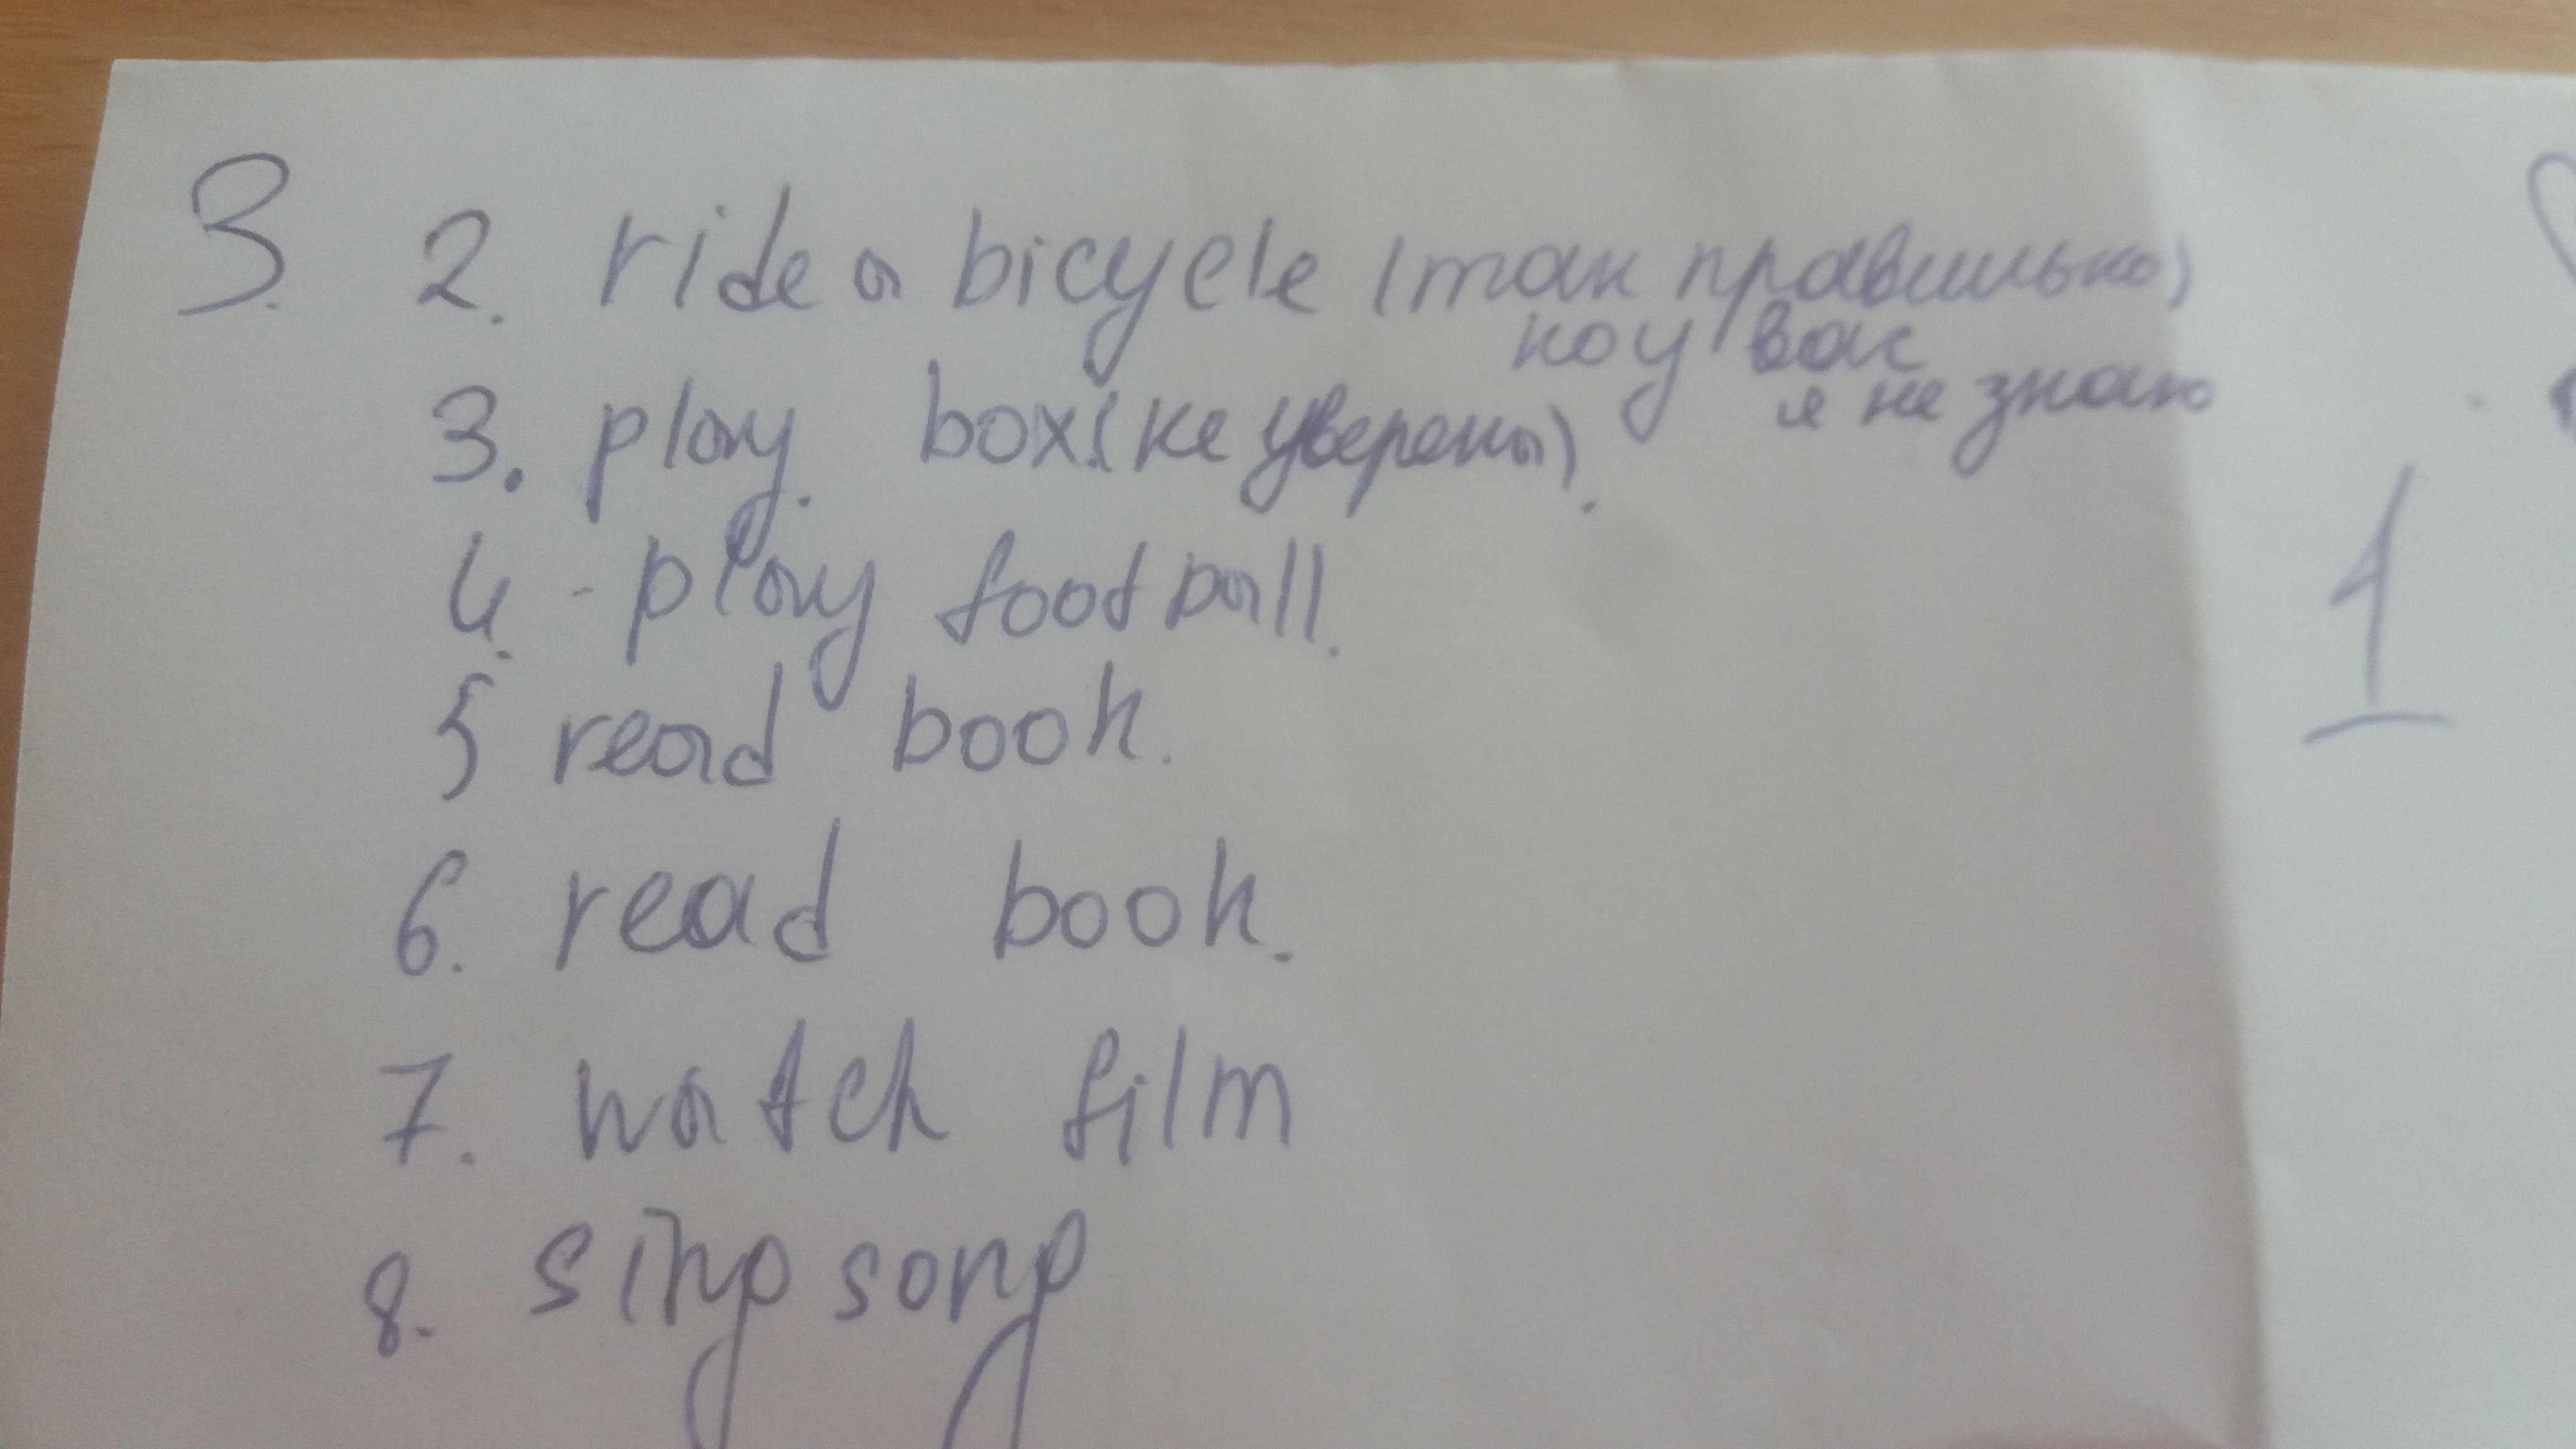 3. 2. ride a bicycle (так правильно)
но у вас
я не знаю
3. play box (не уверены).
4. - play football.
5 read book.
6. read book.
7. watch film
8. sing song
1